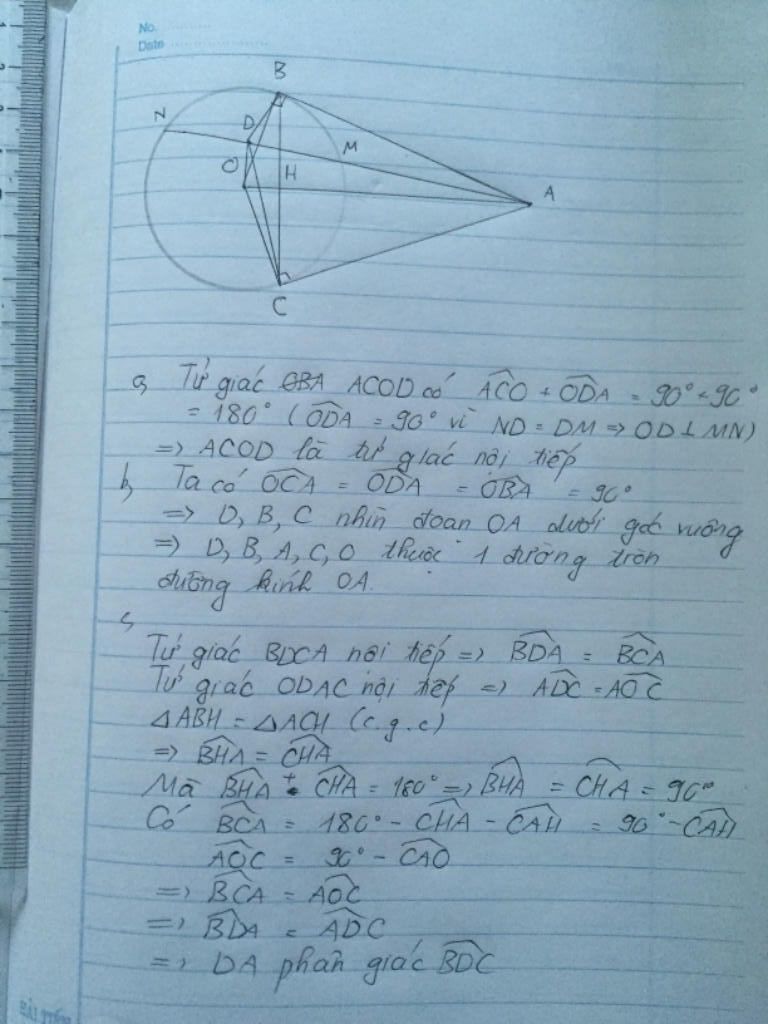 No.
Date
B
N
D
M
O
H
A
C
a, Tứ giác OBA ACOD có ACO + ODA = 90° + 90°
= 180° (ODA = 90° vì ND = DM => OD ⊥ MN)
=> ACOD là tứ giác nội tiếp
b, Ta có OCA = ODA = OBA = 90°
=> D, B, C nhìn đoạn OA dưới góc vuông
=> D, B, A, C, O thuộc 1 đường tròn
đường kính OA.
c,
Tứ giác BDCA nội tiếp => BDA = BCA
Tứ giác ODAC nội tiếp => ADC = AOC
△ABH = △ACH (c.g.c)
=> BHA = CHA
Mà BHA + CHA = 180° => BHA = CHA = 90°
Có BCA = 180° - CHA - CAH = 90° - CAH
AOC = 90° - CAO
=> BCA = AOC
=> BDA = ADC
=> DA phân giác BDC